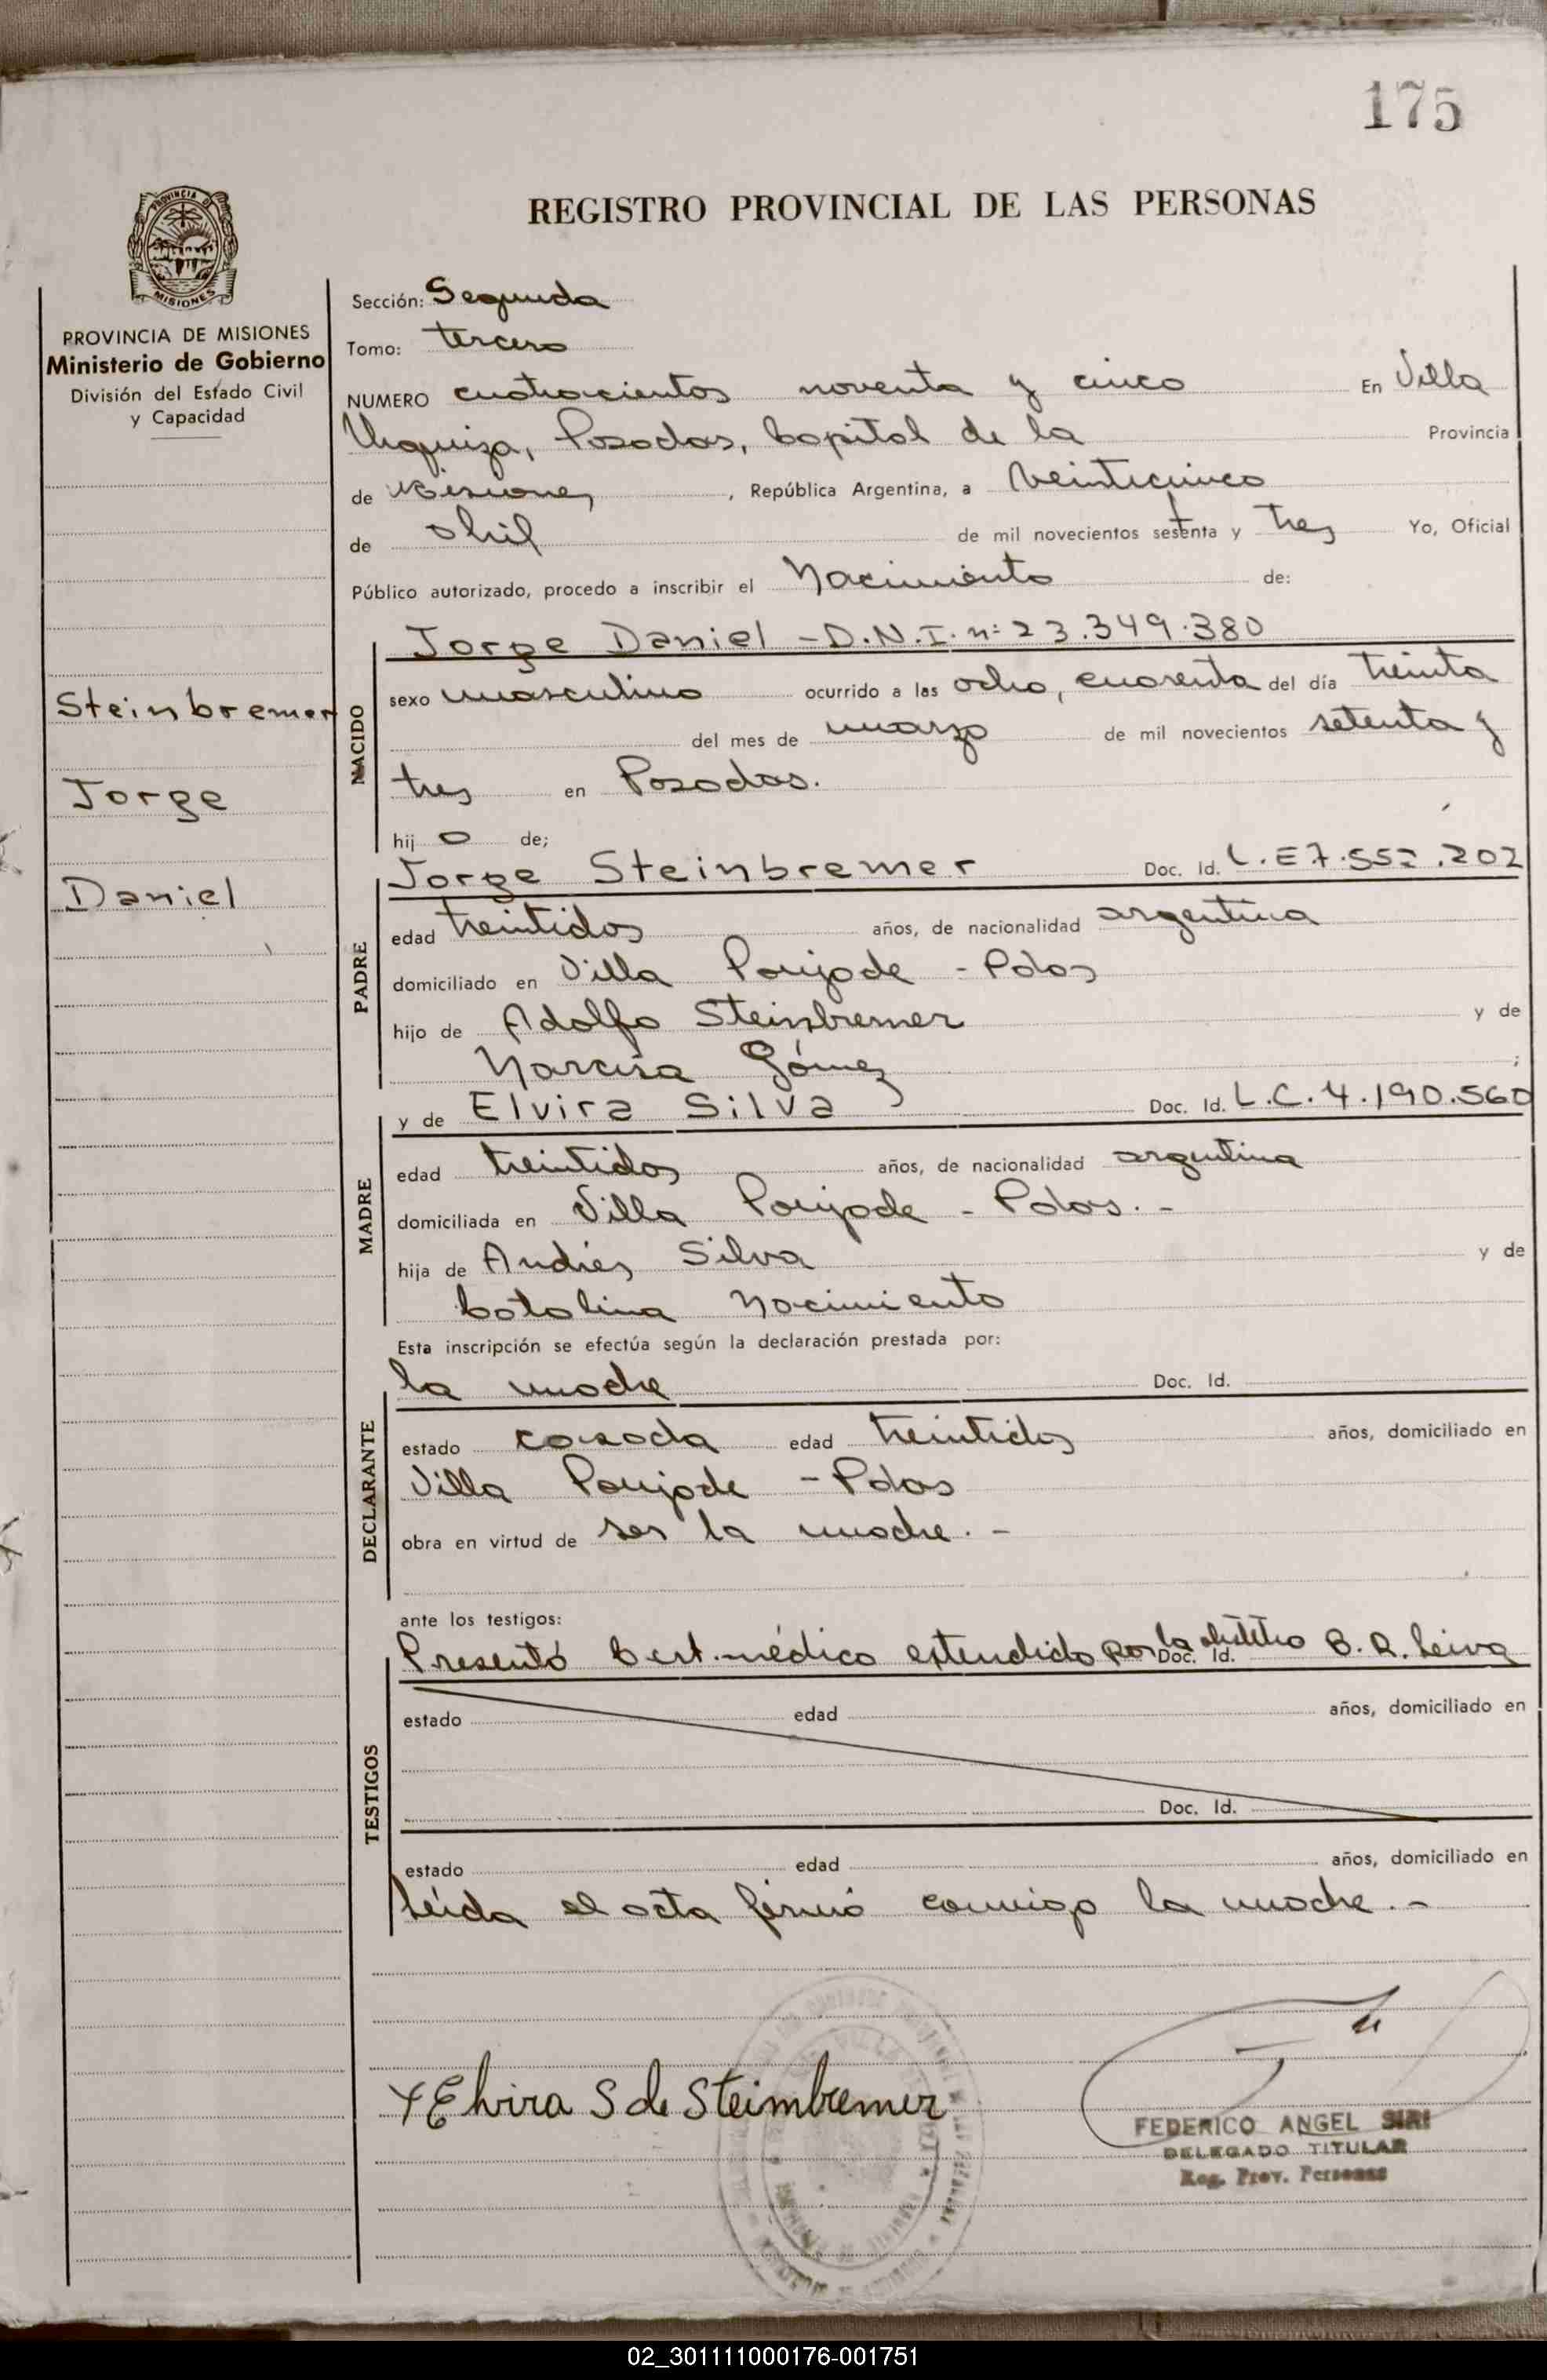 175
REGISTRO PROVINCIAL DE LAS PERSONAS
PROVINCIA DE MISIONES
PROVINCIA DE MISIONES
Ministerio de Gobierno
División del Estado Civil
y Capacidad
Steinbremer
Jorge
Daniel
Sección: Segunda
Tomo: tercero
NUMERO cuatrocientos noventa y cinco En Villa
Urquiza, Posadas, Capital de la Provincia
de Misiones, República Argentina, a Veinticinco
de abril de mil novecientos setenta y tres Yo, Oficial
Público autorizado, procedo a inscribir el Nacimiento de:
NACIDO
Jorge Daniel - D.N.I. nº 23.349.380
sexo masculino ocurrido a las ocho, cuarenta del día treinta
del mes de marzo de mil novecientos setenta y
tres en Posadas.
hij o de;
PADRE
Jorge Steinbremer Doc. Id. L.E 7.552.202
edad treintidos años, de nacionalidad argentina
domiciliado en Villa Poujade - Pdas
hijo de Adolfo Steinbremer y de
Narcisa Gómez ;
MADRE
y de Elvira Silva Doc. Id. L.C. 4.190.560
edad treintidos años, de nacionalidad argentina
domiciliada en Villa Poujade - Pdas. -
hija de Andrés Silva y de
Catalina Nacimiento
Esta inscripción se efectúa según la declaración prestada por:
DECLARANTE
la madre Doc. Id.
estado casada edad treintidos años, domiciliado en
Villa Poujade - Pdas
obra en virtud de ser la madre. -
ante los testigos:
TESTIGOS
Presentó Cert. médico extendido por la Doc. Id. B. R. Leiva
estado edad años, domiciliado en
Doc. Id.
estado edad años, domiciliado en
Leída el acta firmó conmigo la madre. -
Elvira S de Steimbremer
FEDERICO ANGEL SIRI
DELEGADO TITULAR
Reg. Prov. Personas
02_301111000176-001751